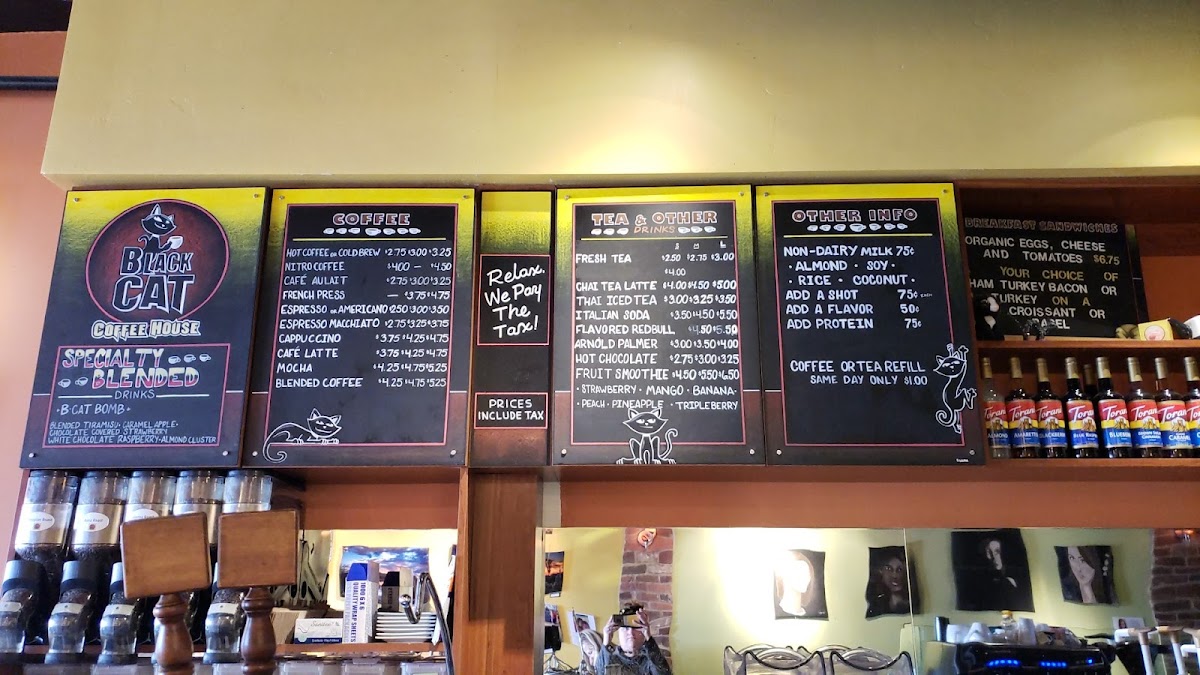 BLACK
CAT
COFFEE HOUSE
SPECIALTY
BLENDED
DRINKS
• B·CAT BOMB •
BLENDED TIRAMISU· CARAMEL APPLE·
CHOCOLATE COVERED STRAWBERRY
WHITE CHOCOLATE RASPBERRY·ALMOND CLUSTER
COFFEE
HOT COFFEE OR COLD BREW $2.75 $3.00 $3.25
NITRO COFFEE $4.00 — $4.50
CAFÉ AU LAIT $2.75 $3.00 $3.25
FRENCH PRESS — $3.75 $4.75
ESPRESSO OR AMERICANO $2.50 $3.00 $3.50
ESPRESSO MACCHIATO $2.75 $3.25 $3.75
CAPPUCCINO $3.75 $4.25 $4.75
CAFÉ LATTE $3.75 $4.25 $4.75
MOCHA $4.25 $4.75 $5.25
BLENDED COFFEE $4.25 $4.75 $5.25
Relax,
We Pay
The
Tax!
PRICES
INCLUDE TAX
TEA & OTHER
DRINKS
S M L
FRESH TEA $2.50 $2.75 $3.00
$4.00
CHAI TEA LATTE $4.00 $4.50 $5.00
THAI ICED TEA $3.00 $3.25 $3.50
ITALIAN SODA $3.50 $4.50 $5.50
FLAVORED REDBULL $4.50 $5.50
ARNOLD PALMER $3.00 $3.50 $4.00
HOT CHOCOLATE $2.75 $3.00 $3.25
FRUIT SMOOTHIE $4.50 $5.50 $6.50
·STRAWBERRY· MANGO · BANANA·
· PEACH · PINEAPPLE · TRIPLEBERRY
OTHER INFO
NON-DAIRY MILK 75¢
· ALMOND · SOY ·
· RICE · COCONUT ·
ADD A SHOT 75¢ EACH
ADD A FLAVOR 50¢
ADD PROTEIN 75¢
COFFEE OR TEA REFILL
SAME DAY ONLY $1.00
BREAKFAST SANDWICHES
ORGANIC EGGS, CHEESE
AND TOMATOES $6.75
YOUR CHOICE OF
HAM TURKEY BACON OR
TURKEY ON A
CROISSANT OR
BAGEL
Torani
Torani
Torani
Torani
Torani
Torani
Torani
ALMOND
AMARETTO
BLACKBERRY
CARAMEL
QUALITY WRAP SHEETS